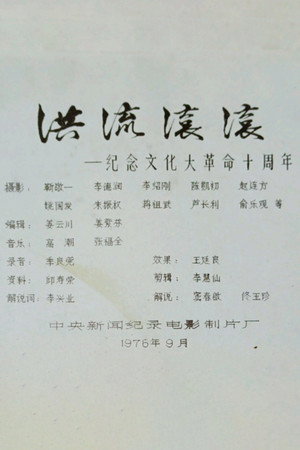 洪流滚滚
—纪念文化大革命十周年
摄影: 靳敬一 李德润 李绍刚 陈凯初 赵连方
姚国发 朱振权 蒋祖武 芦长利 俞乐观 等
编辑: 姜云川 姜紫芬
音乐: 高潮 张福全
录音: 李良尧 效果: 王延良
资料: 邱寿荣 剪辑: 李慧仙
解说词: 李兴业 解说: 葛春敏 佟玉珍
中央新闻纪录电影制片厂
1976年9月